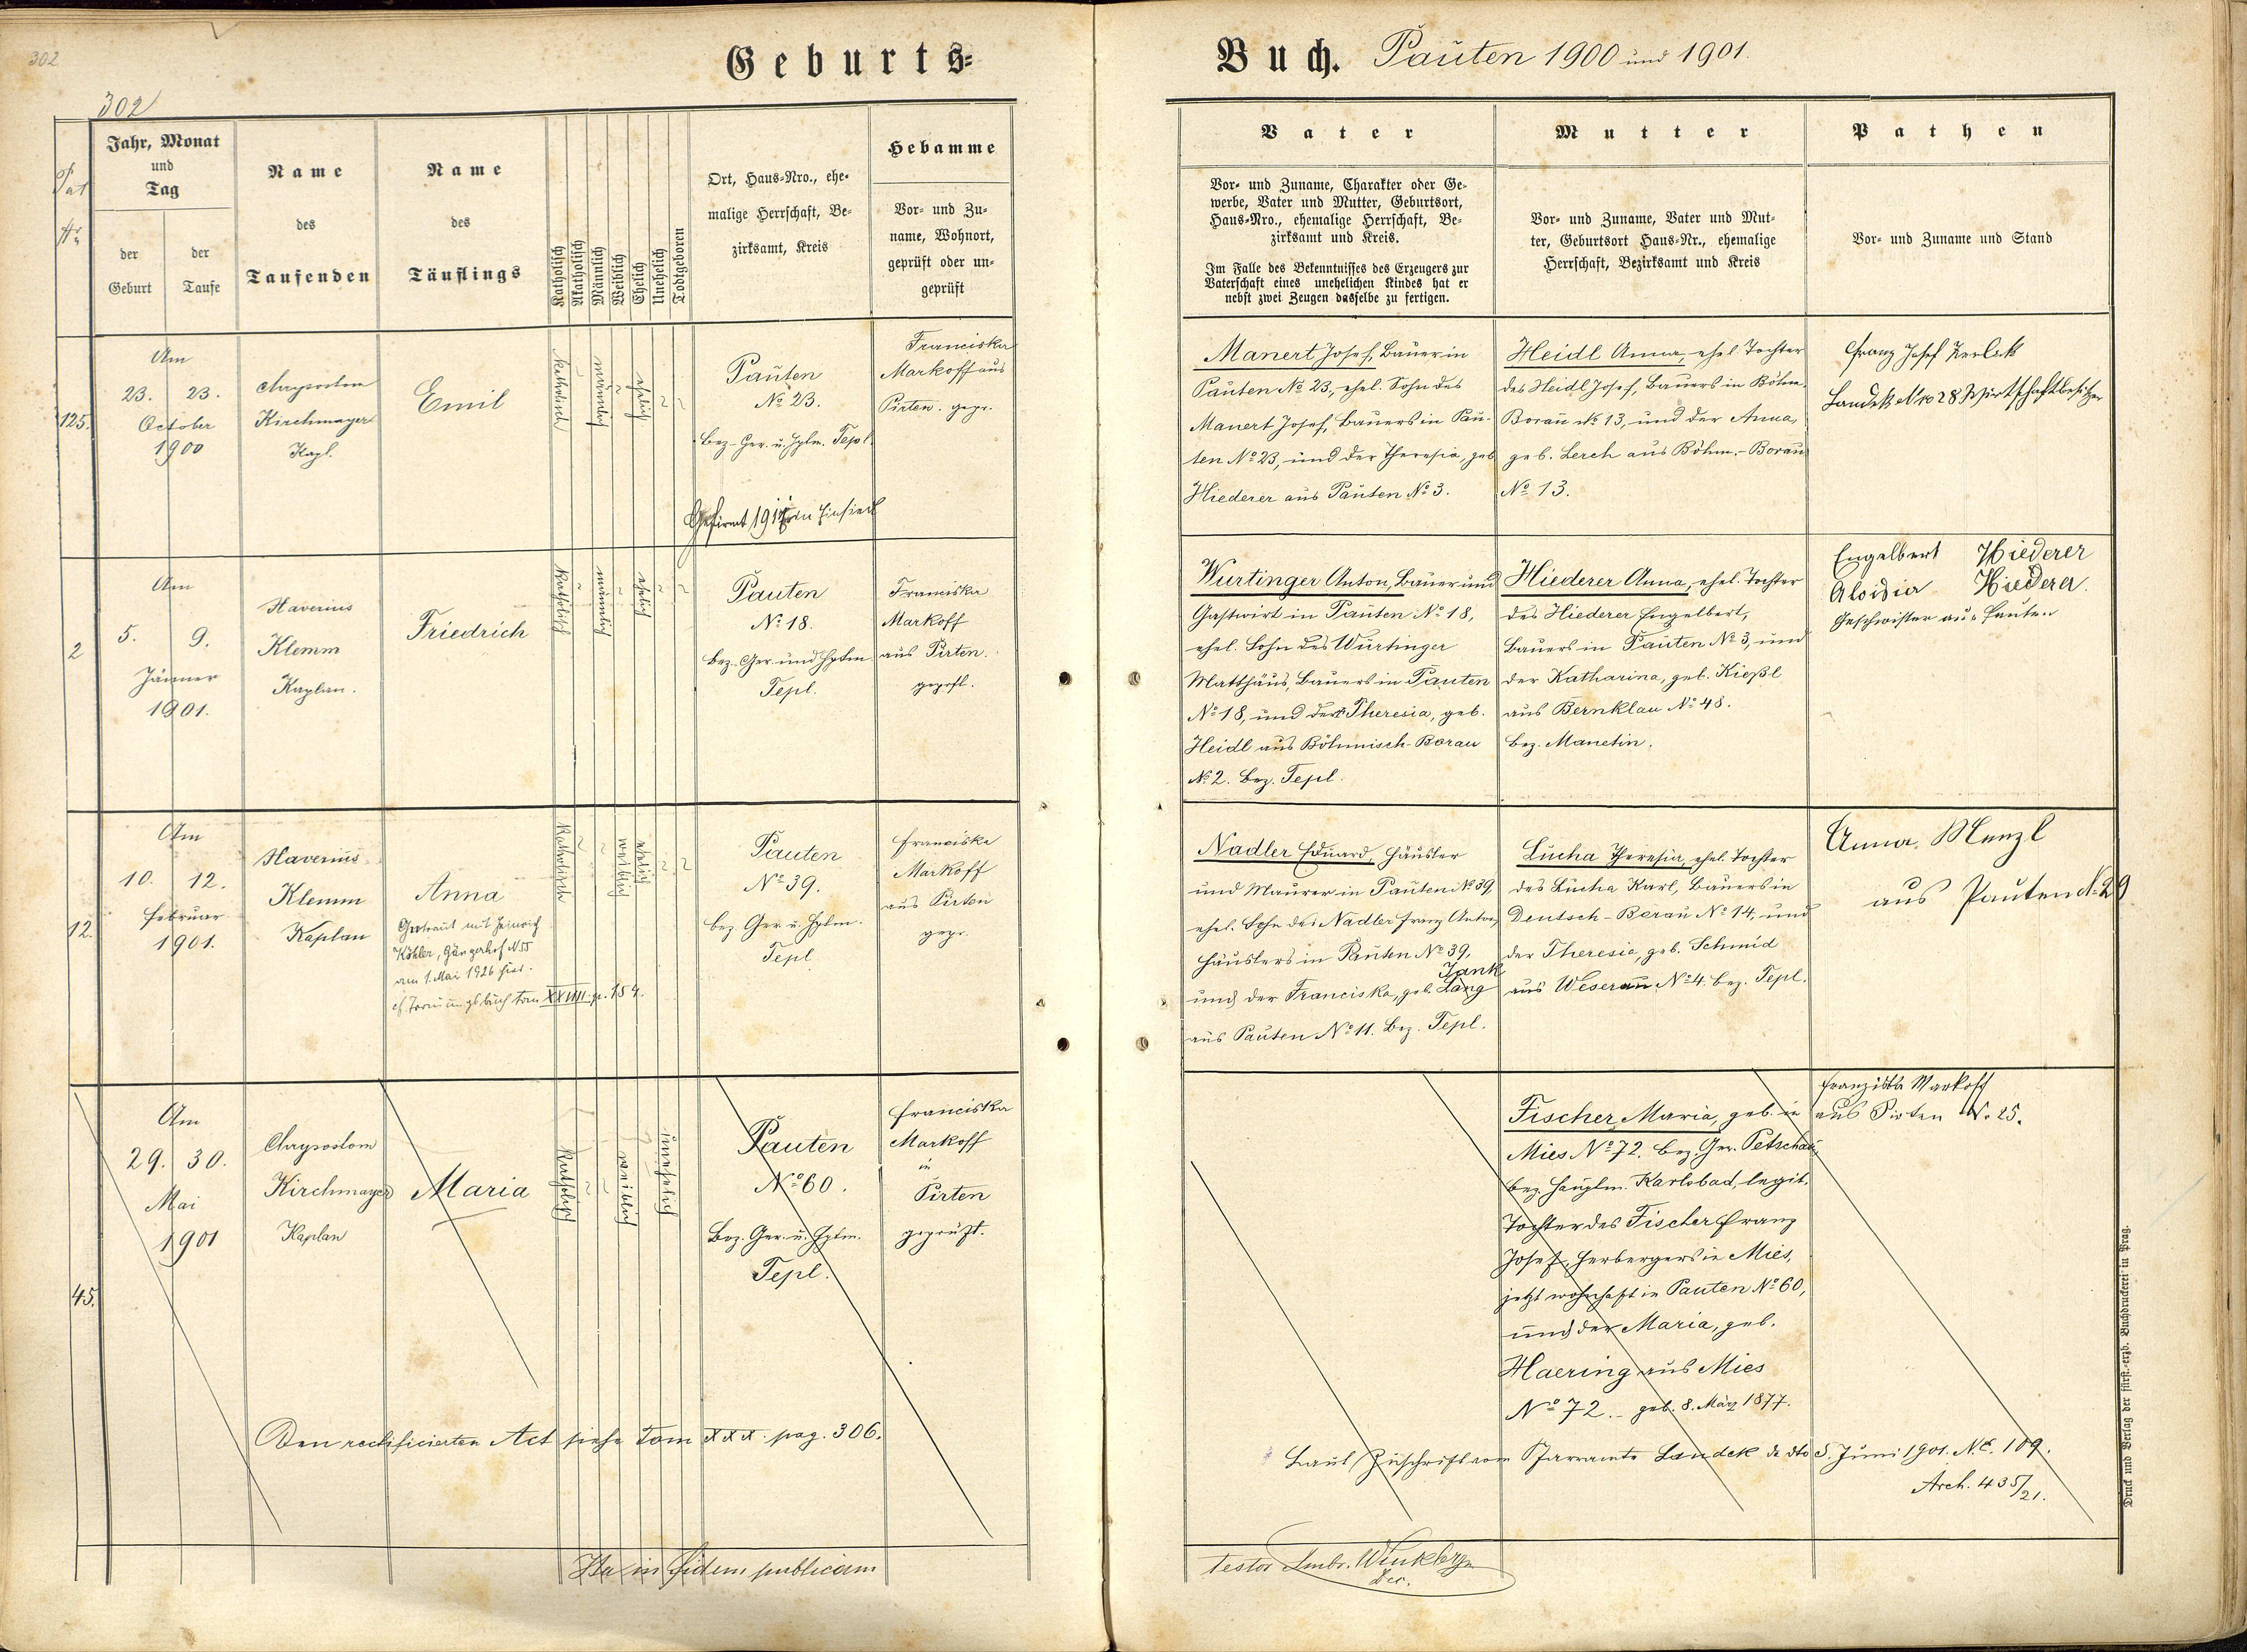 302
302
Geburts=
Jahr, Monat
und
Tag
der
Geburt
der
Taufe
Name
des
Taufenden
Name
des
Täuflings
Katholisch
Akatholisch
Männlich
Weiblich
Ehelich
Unehelich
Todtgeboren
Ort, Haus-Nro., ehe-
malige Herrschaft, Be-
zirksamt, Kreis
Hebamme
Vor- und Zu-
name, Wohnort,
geprüft oder un-
geprüft
125.
Am
23. 23.
October
1900
Chrysostom
Kirchmayer
Kapl.
Emil
katholisch
männlich
ehelich
Pauten
No 23.
Bez.-Ger. u. Hptm. Tepl.
Franciska
Markoff aus
Pirten. gepr.
Gefirmt in Einsiedl
2
Am
5. 9.
Jänner
1901.
Xaverius
Klemm
Kaplan.
Friedrich
katholisch
männlich
ehelich
Pauten
No 18.
Bez.-Ger. und Hptm
Tepl.
Franciska
Markoff
aus Pirten.
geprft.
12.
Am
10. 12.
Februar
1901.
Xaverius
Klemm
Kaplan
Anna
Getraut mit Heinrich
Köhler, Gängerhof N 55
am 1. Mai 1926 hier.
cf. Trauungsbuch tom XXVIII p. 154.
katholisch
weiblich
ehelich
Pauten
No 39.
Bez. Ger. u. Hptm.
Tepl
Franciska
Markoff
aus Pirten
gepr.
45.
Am
29. 30.
Mai
1901
Chrysostom
Kirchmayer
Kaplan
Maria
katholisch
weiblich
unehelich
Pauten
No 60.
Bez. Ger. u. Hptm.
Tepl.
Franciska
Markoff
in
Pirten
geprüft.
Den rectificierten Act siehe Tom XXX. pag. 306.
Ita in fidem publicam
Buch. Pauten 1900 und 1901.
Vater
Vor- und Zuname, Charakter oder Ge-
werbe, Vater und Mutter, Geburtsort,
Haus-Nro., ehemalige Herrschaft, Be-
zirksamt und Kreis.
Im Falle des Bekenntnisses des Erzeugers zur
Vaterschaft eines unehelichen Kindes hat er
nebst zwei Zeugen dasselbe zu fertigen.
Mutter
Vor- und Zuname, Vater und Mut-
ter, Geburtsort Haus-Nr., ehemalige
Herrschaft, Bezirksamt und Kreis
Pathen
Vor- und Zuname und Stand
Manert Josef, Bauer in
Pauten No 23, ehel. Sohn des
Manert Josef, Bauers in Pau-
ten No 23, und der Theresia, geb
Hiederer aus Pauten No 3.
Heidl Anna, ehel. Tochter
des Heidl Josef, Bauers in Böhm.
Borau No 13, und der Anna,
geb. Lerch aus Böhm.-Borau
No 13.
Franz Josef
Landek Nro 28 Wirtschaftbesitzer
Wurtinger Anton, Bauer und
Gastwirt in Pauten No 18,
ehel. Sohn des Wurtinger
Matthäus, Bauers in Pauten
No 18, und der Theresia, geb.
Heidl aus Böhmisch-Borau
No 2. Bez. Tepl.
Hiederer Anna, ehel. Tochter
des Hiederer Engelbert,
Bauers in Pauten No 3, und
der Katharina, geb. Kießl
aus Bernklau No 48.
Bez. Manetin.
Engelbert Hiederer
Aloisia Hiederer.
Geschwister aus Pauten
Nadler Eduard, Häusler
und Maurer in Pauten No 39
ehel. Sohn des Nadler Franz Anton,
Häuslers in Pauten No 39,
Jank
und der Franciska, geb. Lang
aus Pauten No 11. Bez. Tepl.
Lucha Theresia, ehel. Tochter
des Lucha Karl, Bauers in
Deutsch-Borau No 14, und
der Theresia, geb. Schmid
aus Weserau No 4. Bez. Tepl.
Anna Menzl
aus Pauten N. 29
Fischer Maria, geb. in
Mies No 72. Bez. Ger. Petschau,
Bez. Hauptm. Karlsbad, legit.
Tochter des Fischer Franz
Josef, Herbergers in Mies,
jetzt wohnhaft in Pauten No 60,
und der Maria, geb.
Haering aus Mies
No 72. geb. 8. März 1877.
Franziska Markoff
aus Pirten N. 25.
Laut Zuschrift vom Pfarramte Landek de dto 5. Juni 1901. N.E. 109.
Arch. 435/21.
testor Ambr. Dec.
Druck und Verlag der fürst.-erzb. Buchdruckerei in Prag.